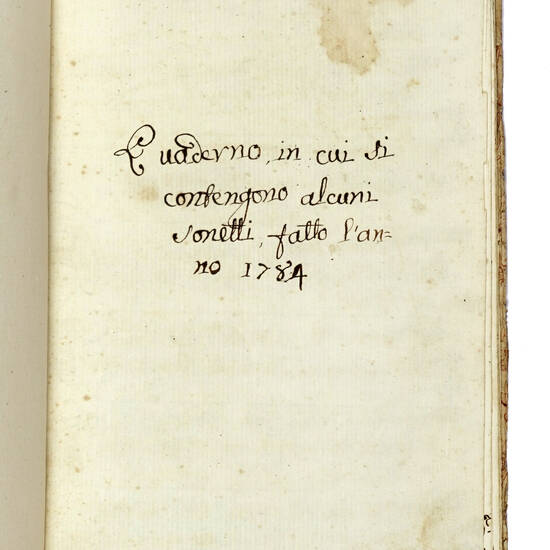 Quaderno, in cui si
contengono alcuni
sonetti, fatto l'an=
no 1784